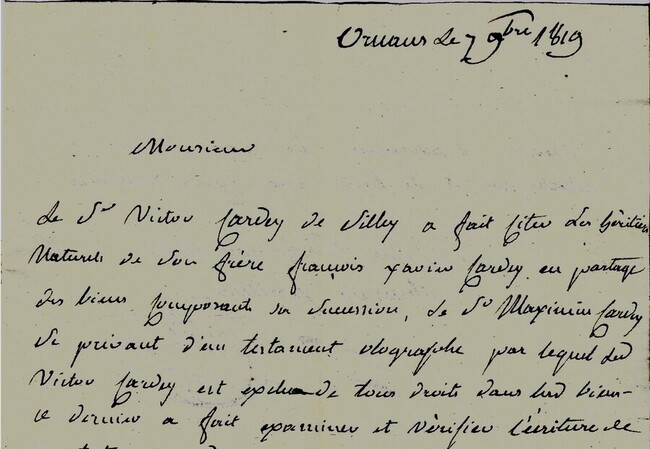 Ornans le 7 9bre 1819
Monsieur
Le Sr Victor Cardey de Silley a fait citer les héritiers
naturels de son frère françois xavier Cardey en partage
des biens composants sa succession, le Sr Maximin Cardey
se privant d'un testament olographe par lequel led
Victor Cardey est exclu de tous droits dans lesd biens
ce dernier a fait examiner et vérifier l'écriture de